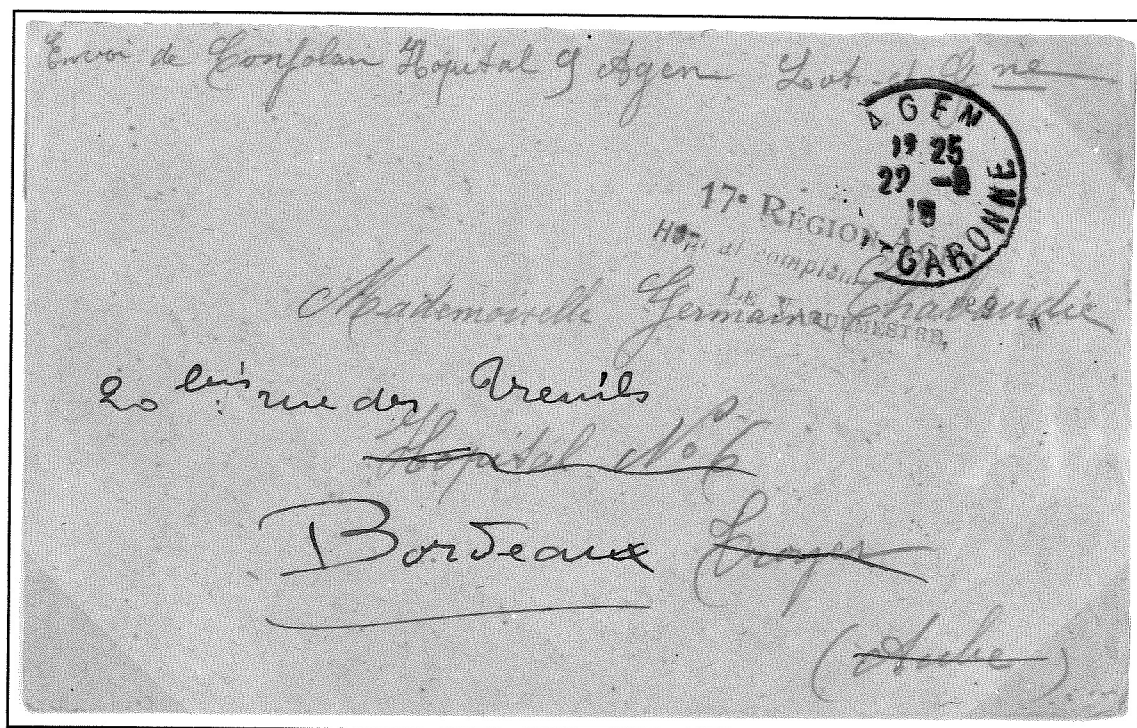 Envoi de Confolain Hôpital 9 Agen Lot-et-Gne
AGEN
17 25
22
GARONNE
17e RÉGION
Hôpital Complém
LE VAGUEMESTRE,
Mademoiselle Germaine Chabaudie
20 bis rue des Treuils
Hôpital No 6
Bordeaux Troyes
(Aube)